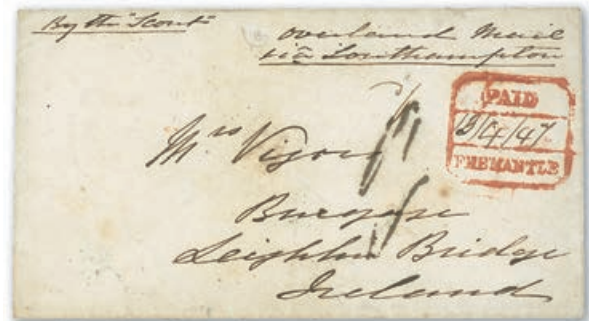 By the "Scout"
Overland Mail
via Southampton
PAID
13/4/47
FREMANTLE
Mrs Vigors
Burgage
Leighlin Bridge
Ireland